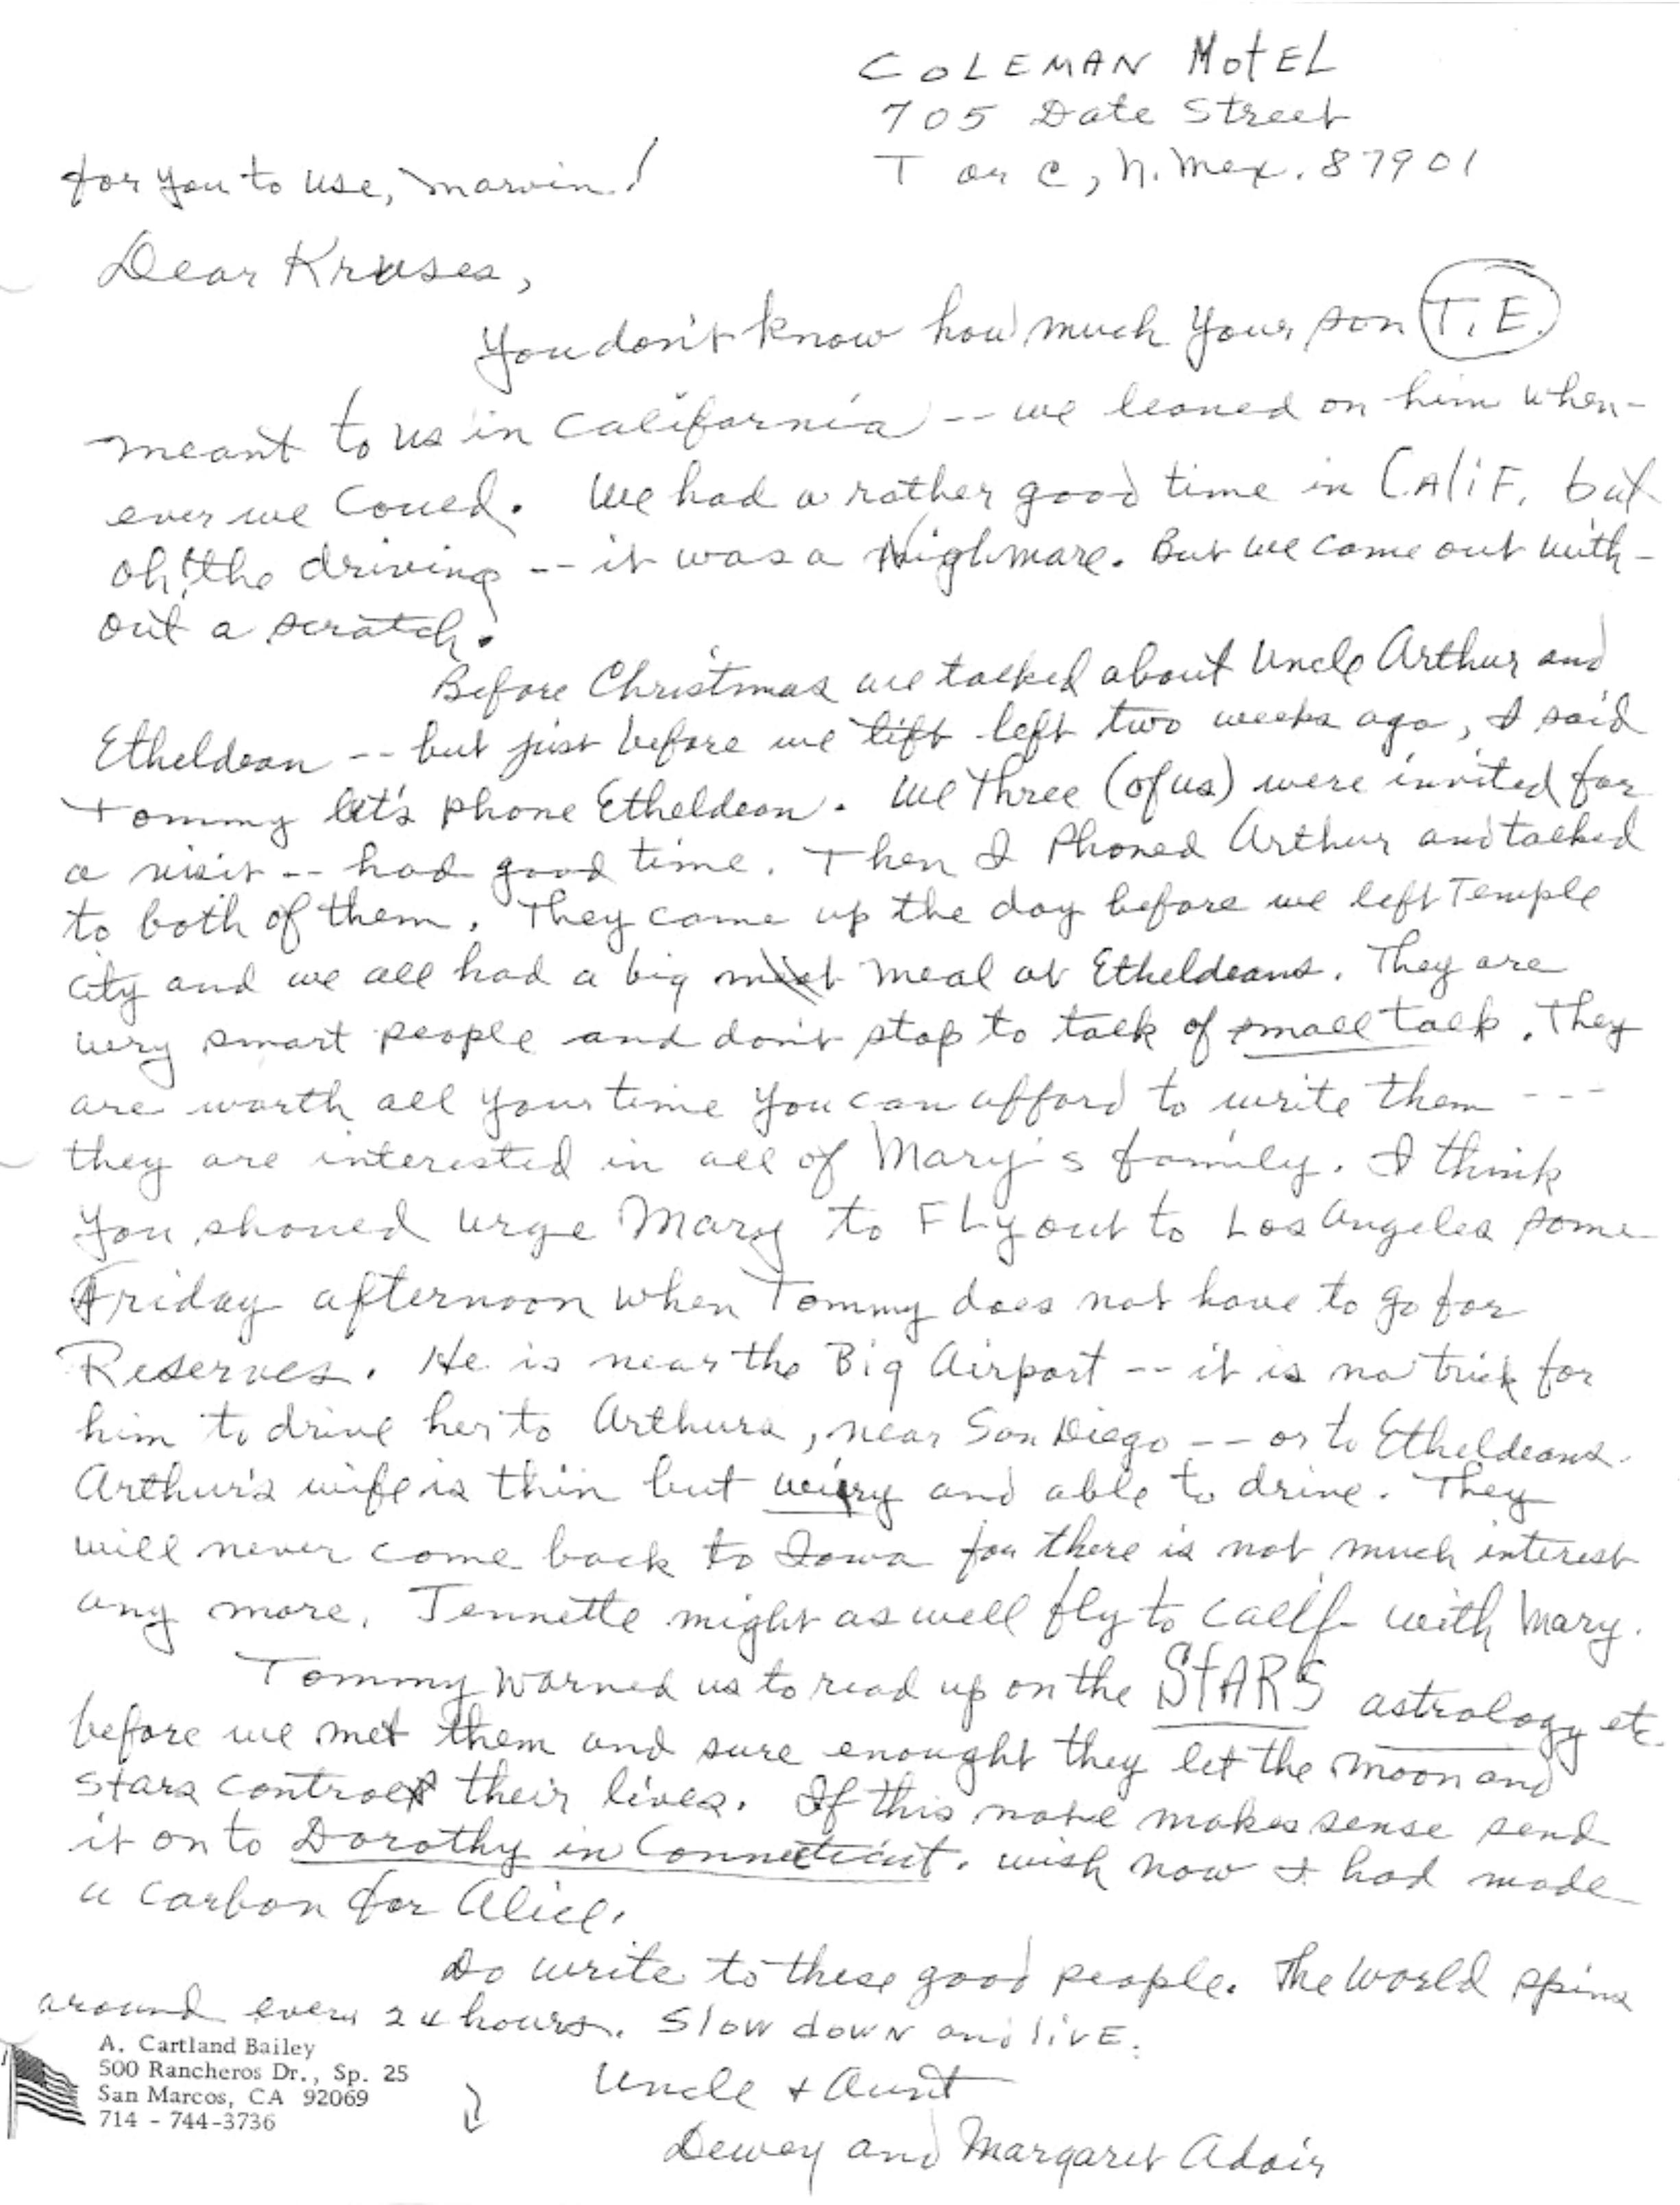 COLEMAN MotEL
705 Date Street
T or C, N. Mex. 87901
for you to use, Marvin!
Dear Kruses,
You don't know how much your son T.E.
meant to us in California -- we leaned on him when-
ever we could. We had a rather good time in CAliF. but
oh! the driving -- it was a Nighmare. But we came out with-
out a scratch.
Before Christmas we talked about Uncle Arthur and
Etheldean -- but just before we lift left two weeks ago, I said
Tommy let's phone Etheldean. We three (of us) were invited for
a visit -- had good time. Then I Phoned Arthur and talked
to both of them. They came up the day before we left Temple
City and we all had a big meal at Etheldeans. They are
very smart people and don't stop to talk of small talk. They
are worth all your time you can afford to write them ---
they are interested in all of Mary's family. I think
you should urge Mary to FLy out to Los Angeles some
Friday afternoon when Tommy does not have to go for
Reserves. He is near the Big Airport -- it is no trick for
him to drive her to Arthurs, near San Diego -- or to Etheldeans.
Arthur's wife is thin but wiry and able to drive. They
will never come back to Iowa for there is not much interest
any more. Jennette might as well fly to Calif with Mary.
Tommy warned us to read up on the StARS astrology etc
before we met them and sure enought they let the moon and
stars control their lives. If this note makes sense send
it on to Dorothy in Connecticut. wish now I had made
a carbon for Alice.
Do write to these good people. The World spins
around every 24 hours. Slow down and liVE.
A. Cartland Bailey
500 Rancheros Dr., Sp. 25
San Marcos, CA 92069
714 - 744-3736
Uncle + Aunt
Dewey and Margaret Adair